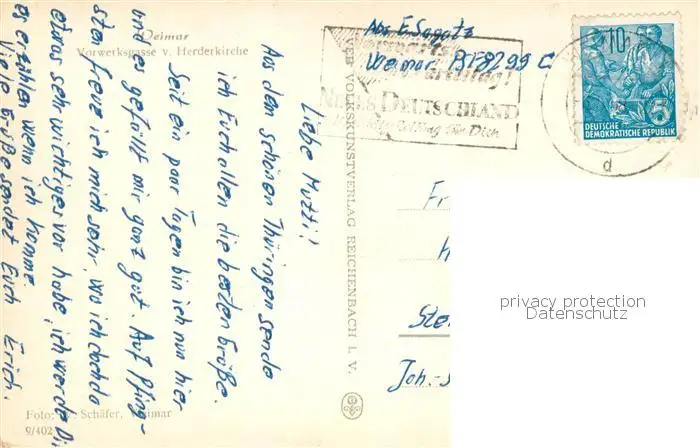 Weimar
Vorwerksgasse v. Herderkirche
Liebe Mutti!
Aus dem schönen Thüringen sende
ich Euch allen die besten Grüße.
Seit ein paar Tagen bin ich nun hier
und es gefällt mir ganz gut. Auf Pfing-
sten freue ich mich sehr, wo ich doch da
etwas sehr wichtiges vor habe, ich werde Di
es erzählen wenn ich komme.
Viele Grüße sendet Euch Erich.
Foto: Schäfer, Weimar
9/402
VEB VOLKSKUNSTVERLAG REICHENBACH I. V.
Abs. E. Sagatz
Weimar PSF 8299 C
NEUES DEUTSCHLAND
Zeitung für Dich
10
5
DEUTSCHE
DEMOKRATISCHE REPUBLIK
d
Fr
H
Ste
Joh.-S
privacy protection
Datenschutz